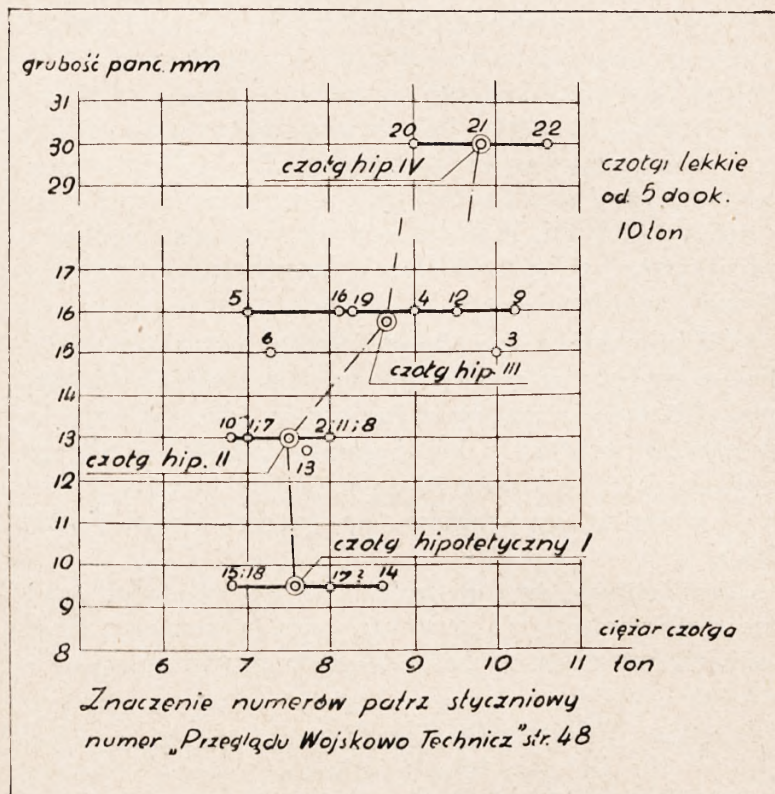 grubość panc. mm
31
30
29
20 21 22
czołg hip. IV
czołgi lekkie
od 5 do ok.
10 ton
17
16
15
14
13
12
11
10
9
8
5 16 19 4 12 9
6 3
czołg hip. III
10 1;7 2;11;8
czołg hip. II
13
czołg hipotetyczny I
15;18 17? 14
ciężar czołga
6 7 8 9 10 11 ton
Znaczenie numerów patrz styczniowy
numer „Przeglądu Wojskowo Technicz" str. 48